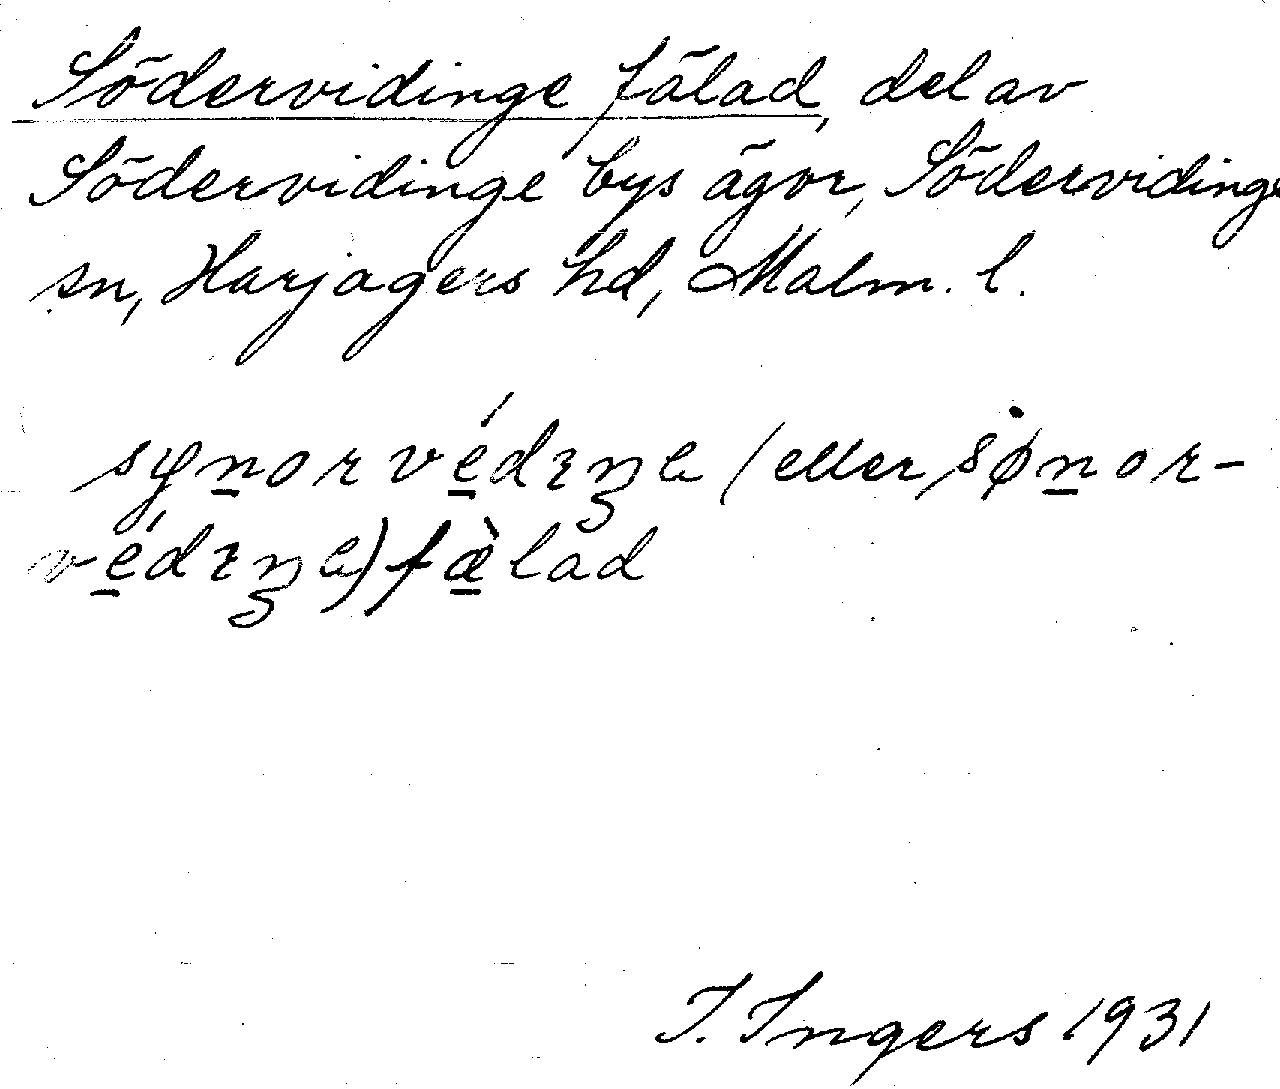 Södervidinge fälad, del av
Södervidinge bys ägor, Södervidinge
sn, Harjagers hd, Malm. l.
synorvédıŋe (eller sønor-
védıŋe) fæ̀lad
I. Ingers 1931